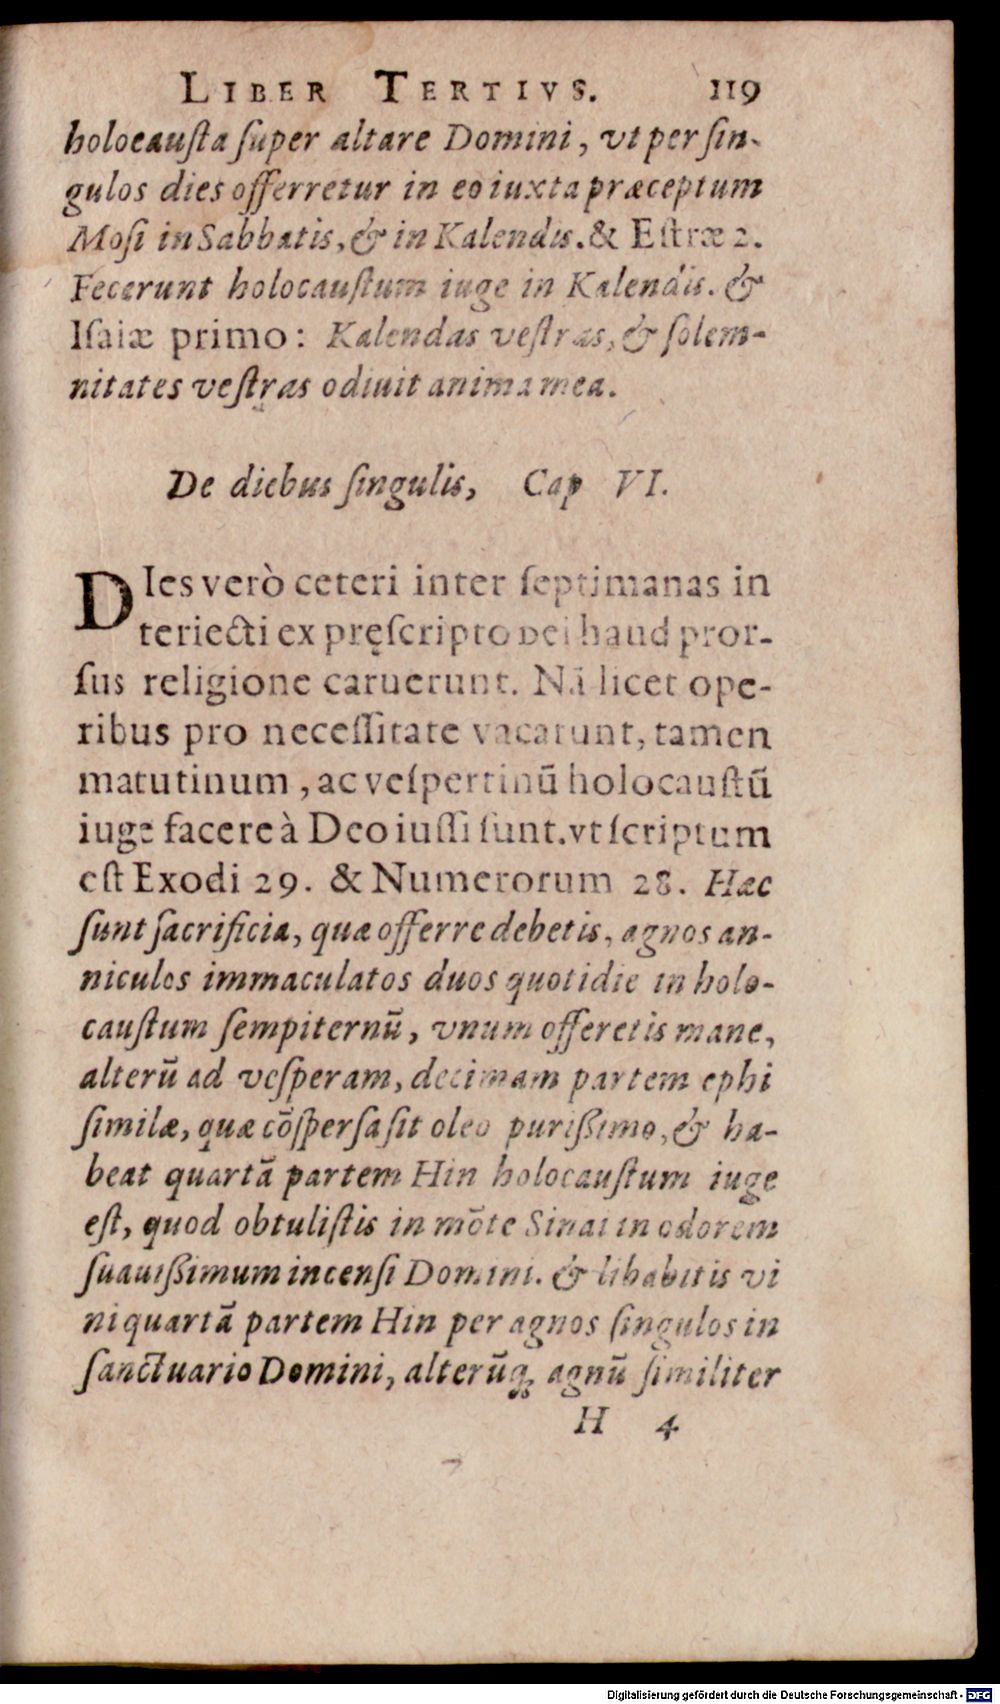 LIBER TERTIVS. 119
holocausta ſuper altare Domini, vt per ſin-
gulos dies offerretur in eo iuxta præceptum
Moſi in Sabbatis, & in Kalendis. & Eſtræ 2.
Fecerunt holocauſtum iuge in Kalendis. &
Iſaiæ primo: Kalendas veſtras, & ſolem-
nitates veſtras odiuit anima mea.
De diebus ſingulis, Cap VI.
DIes verò ceteri inter ſeptimanas in
teriecti ex pręſcripto Dei haud pror-
ſus religione caruerunt. Nā licet ope-
ribus pro neceſſitate vacarunt, tamen
matutinum, ac veſpertinū holocauſtū
iuge facere à Deo iuſſi ſunt. vt ſcriptum
eſt Exodi 29. & Numerorum 28. Hæc
ſunt ſacrificia, quæ offerre debetis, agnos an-
niculos immaculatos duos quotidie in holo-
cauſtum ſempiternū, vnum offeretis mane,
alterū ad veſperam, decimam partem ephi
ſimilæ, quæ cōſperſa ſit oleo purißimo, & ha-
beat quartā partem Hin holocauſtum iuge
eſt, quod obtuliſtis in mōte Sinai in odorem
ſuauißimum incenſi Domini. & libabitis vi
ni quartā partem Hin per agnos ſingulos in
ſanctuario Domini, alterūq; agnū ſimiliter
H 4
Digitalisierung gefördert durch die Deutsche Forschungsgemeinschaft - DFG